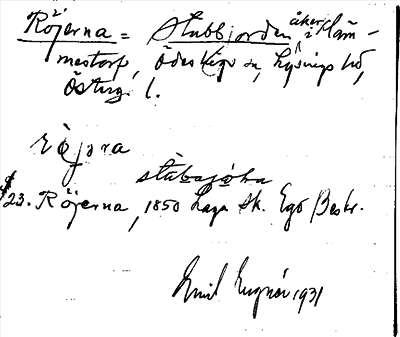 Röjerna = Stubbjorden åker i Häm-
mestorp, Ödeshögs sn, Lysings hd,
Österg. l.
röjəra
stùbajóka
23. Röjerna, 1850 Laga sk. Ego Beskr.
Emil 1931